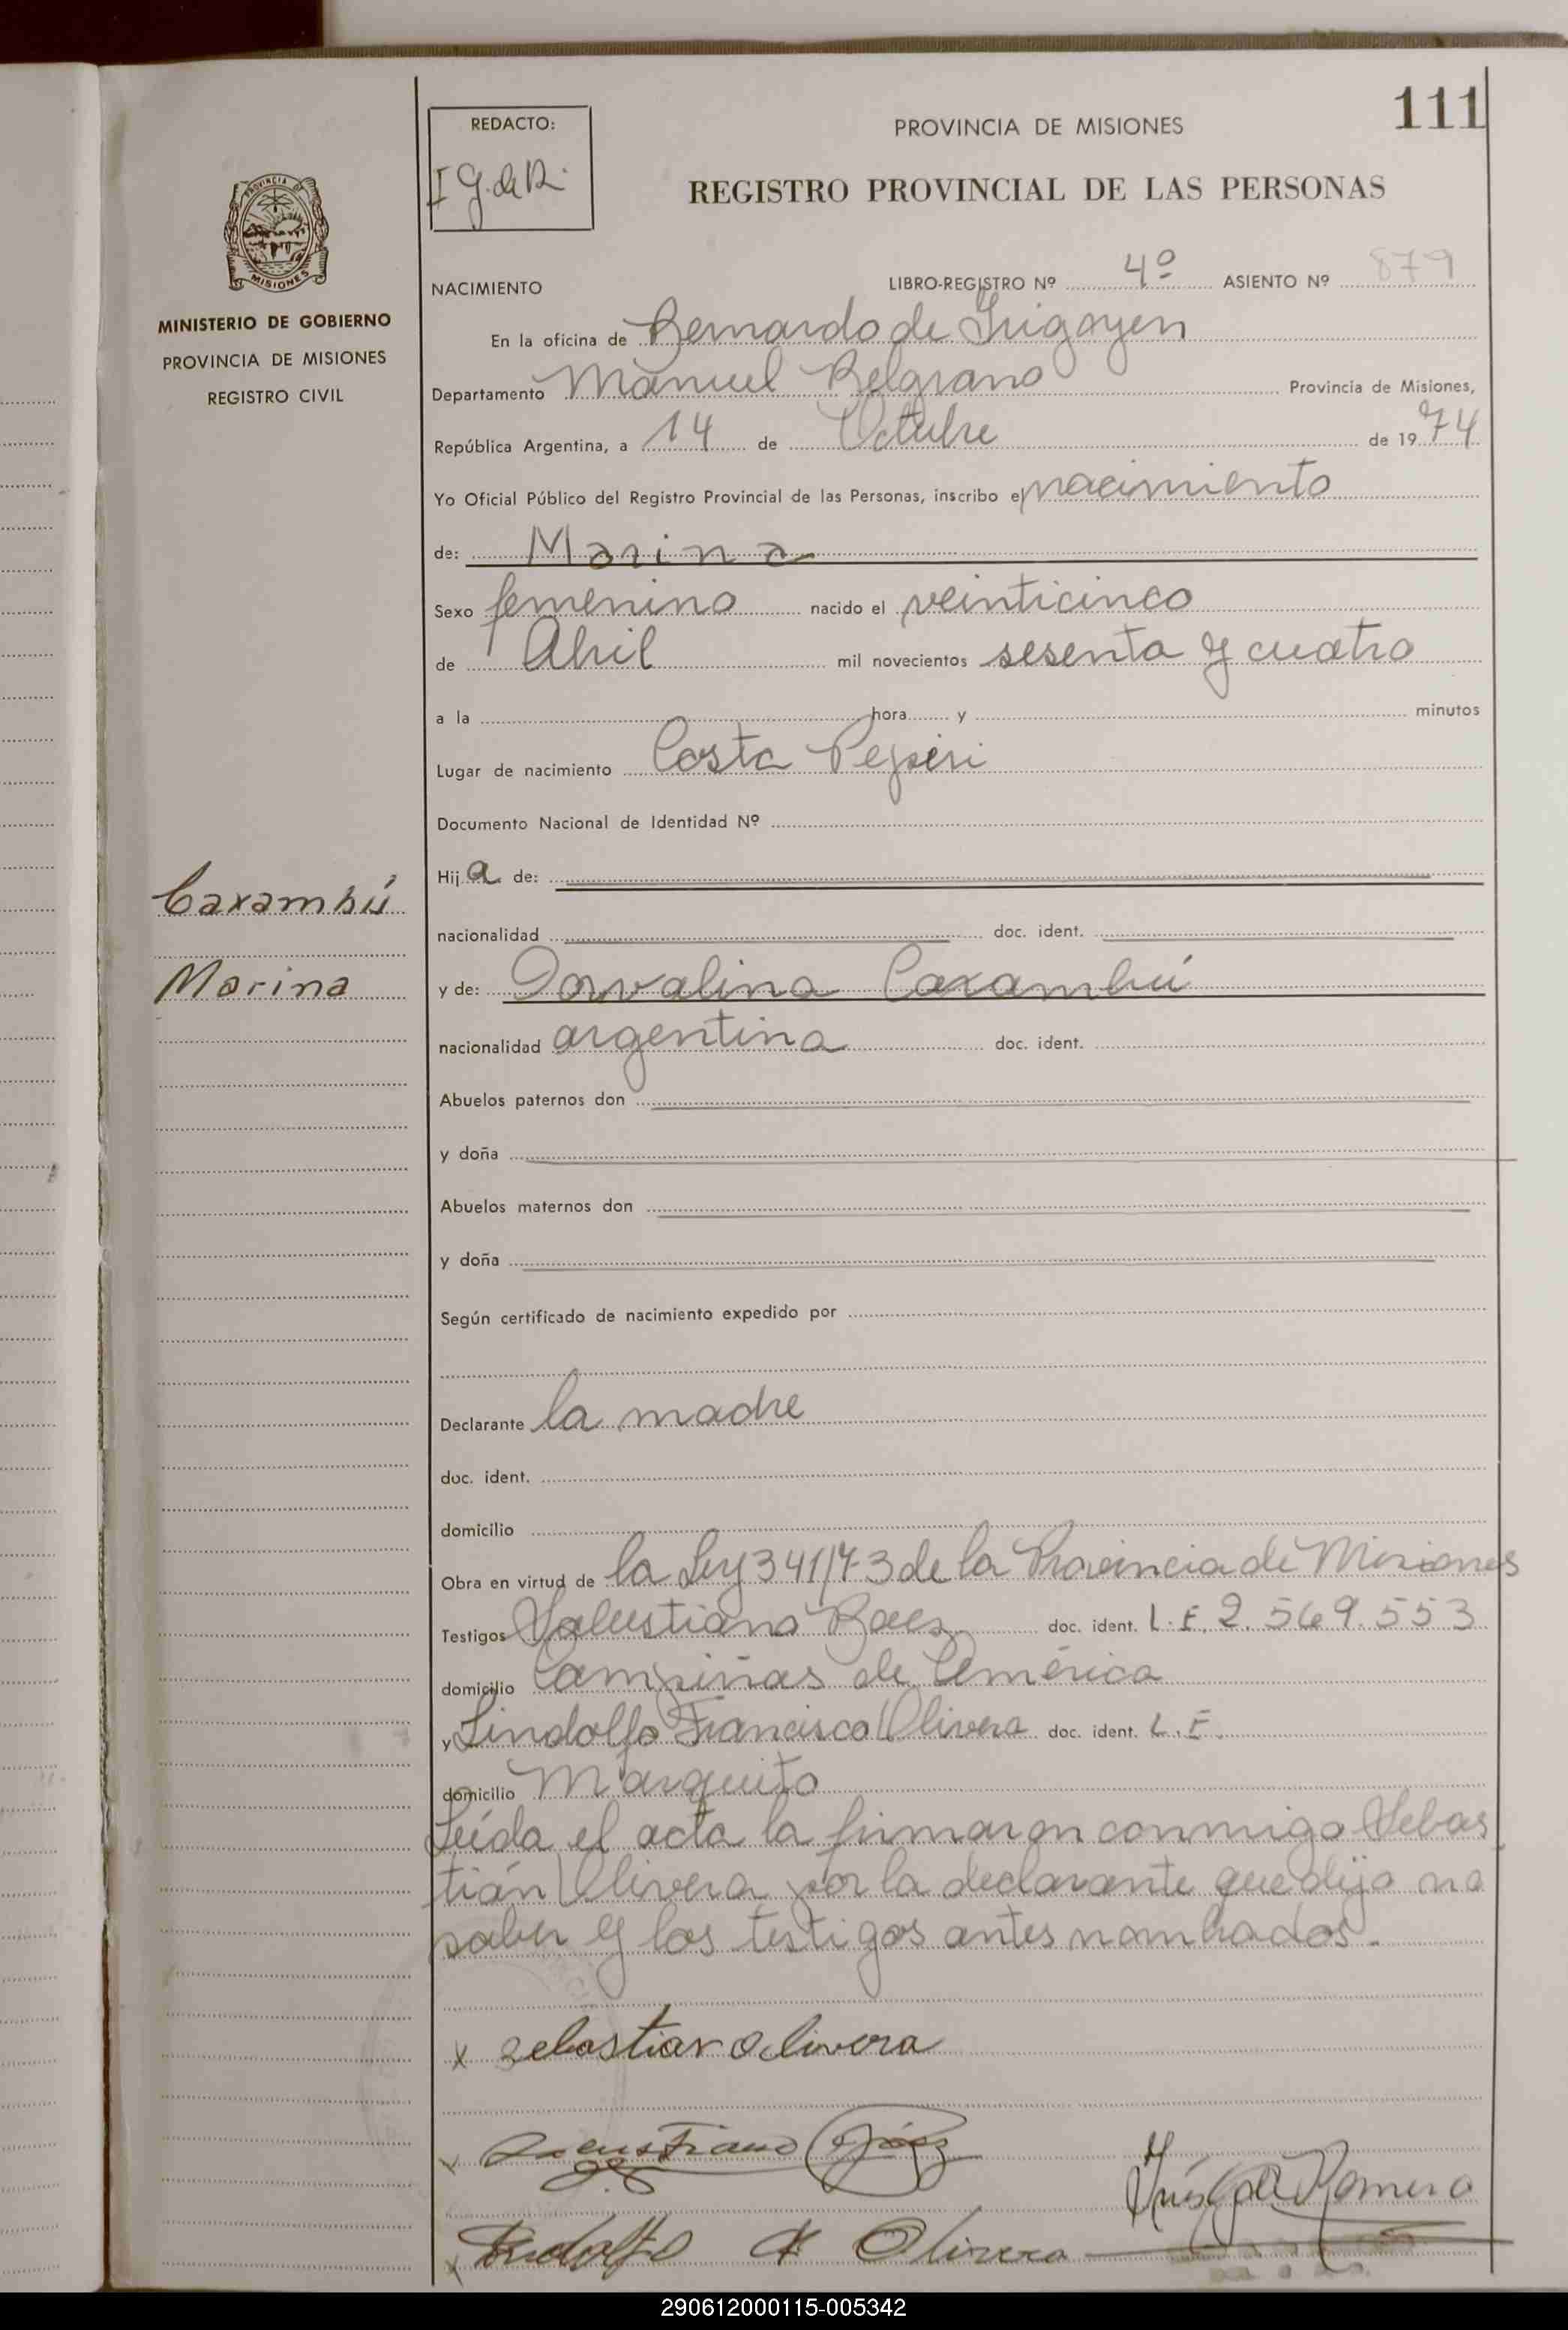 111
REDACTO:
I G. de R.
PROVINCIA DE MISIONES
REGISTRO PROVINCIAL DE LAS PERSONAS
PROVINCIA DE
MISIONES
MINISTERIO DE GOBIERNO
PROVINCIA DE MISIONES
REGISTRO CIVIL
NACIMIENTO LIBRO-REGISTRO Nº 4º ASIENTO Nº 879
En la oficina de Bernardo de Irigoyen
Departamento Manuel Belgrano Provincia de Misiones,
República Argentina, a 14 de Octubre de 1974
Yo Oficial Público del Registro Provincial de las Personas, inscribo el nacimiento
de: Marina
Sexo femenino nacido el veinticinco
de Abril mil novecientos sesenta y cuatro
a la hora y minutos
Lugar de nacimiento Costa Pepirí
Documento Nacional de Identidad Nº
Hija de:
Caxambú
nacionalidad doc. ident.
Marina
y de: Dorvalina Caxambú
nacionalidad argentina doc. ident.
Abuelos paternos don
y doña
Abuelos maternos don
y doña
Según certificado de nacimiento expedido por
Declarante la madre
doc. ident.
domicilio
Obra en virtud de la Ley 341/73 de la Provincia de Misiones
Testigos Salustiano Baez doc. ident. L.E. 2.569.553
domicilio Campiñas de América
y Lindolfo Francisco Olivera doc. ident. L.E.
domicilio Marquito
Leída el acta la firmaron conmigo Sebas
tián Olivera por la declarante que dijo no
saber y los testigos antes nombrados.
x Sebastian Olivera
x Salustiano Báez
Inés G de Romero
x Lindolfo F Olivera
290612000115-005342